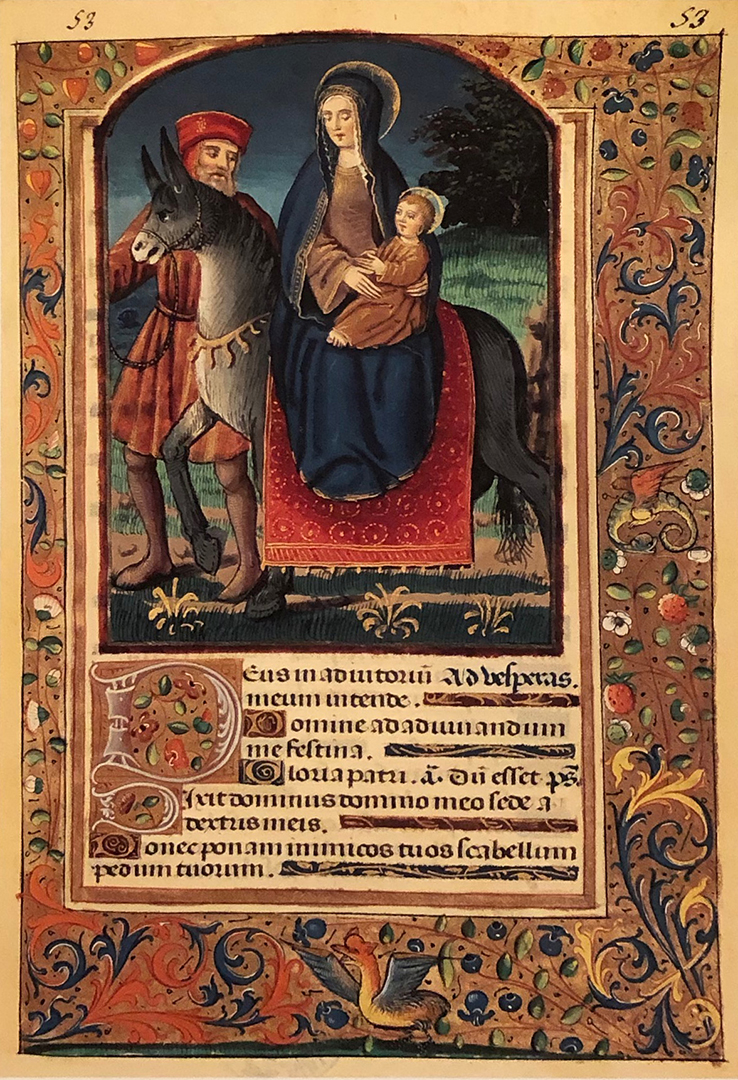 53 53
Deus in adiutoriū Ad vesperas.
meum intende.
Domine ad adiuuandum
me festina.
Gloria patri. ā. Dū esset. ps.
Dixit dominus domino meo sede a
dextris meis.
Donec ponam inimicos tuos scabellum
pedum tuorum.